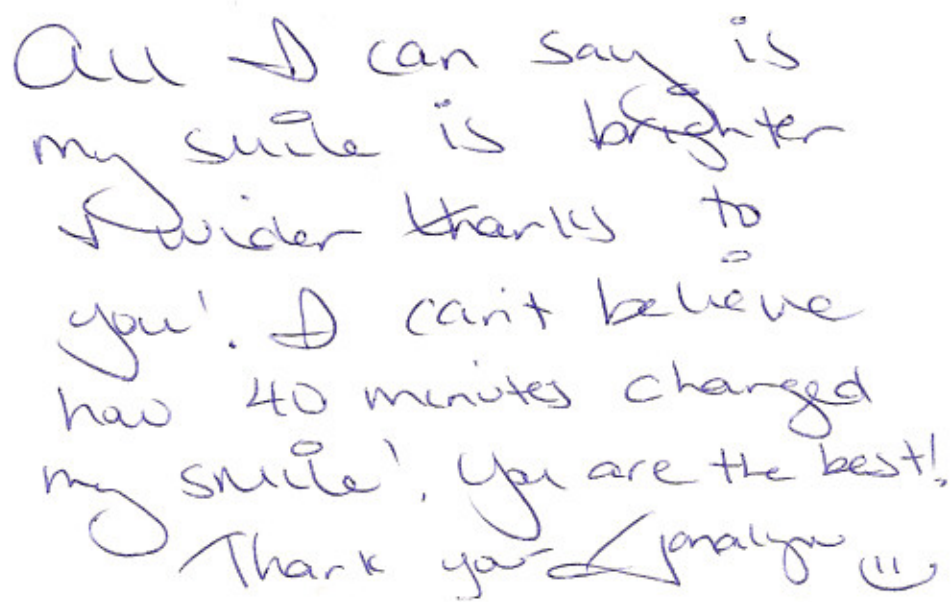 All I can say is
my smile is brighter
& wider thanks to
you! I can't believe
how 40 minutes changed
my smile! You are the best!
Thank you